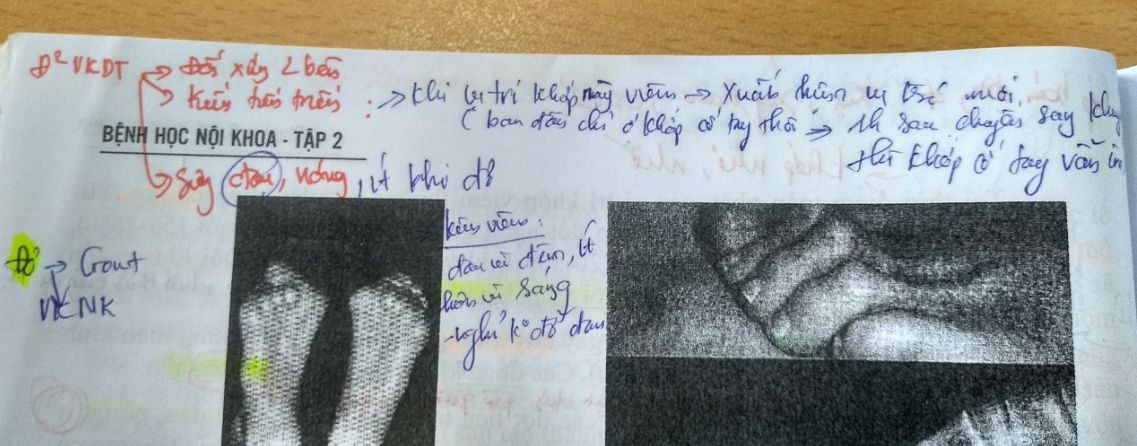 Đ² VKDT → Đối xứng 2 bên
→ Kiểu tiến triển : → khi vị trí khớp này viêm → xuất hiện vị trí mới.
( ban đầu chỉ ở khớp cổ tay thôi → sau chuyển sang
thì khớp cổ tay vẫn
BỆNH HỌC NỘI KHOA - TẬP 2
→ Sưng đau, nóng, ít khi đỏ
Đỏ → Gout
VKNK
kiểu viêm :
đau về đêm, ít
hơn về sáng
- nghỉ k° đỡ đau